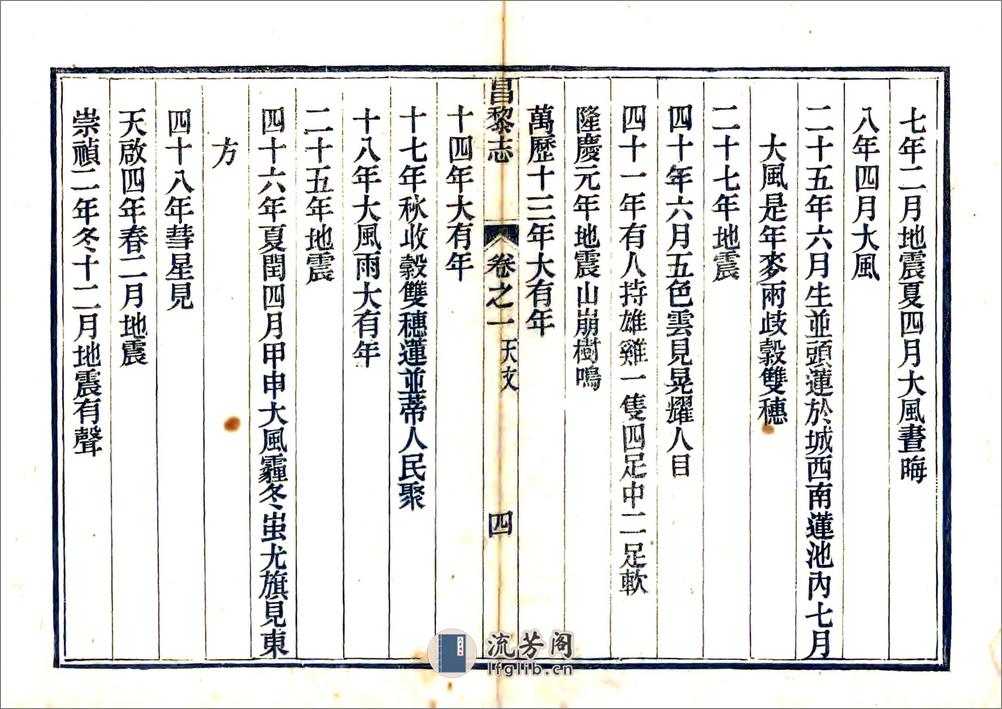 七年二月地震夏四月大風晝晦
八年四月大風
二十五年六月生並頭蓮於城西南蓮池內七月
大風是年麥雨歧穀雙穗
二十七年地震
四十年六月五色雲見晃耀人目
四十一年有人持雄雞一隻四足中二足軟
隆慶元年地震山崩樹鳴
萬歷十三年大有年
昌黎志 卷之一 天文 四
十四年大有年
十七年秋收穀雙穗蓮並蒂人民聚
十八年大風雨大有年
二十五年地震
四十六年夏閏四月甲申大風霾冬蚩尤旗見東
方
四十八年彗星見
天啟四年春二月地震
崇禎二年冬十二月地震有聲
流芳阁
lfglib.cn